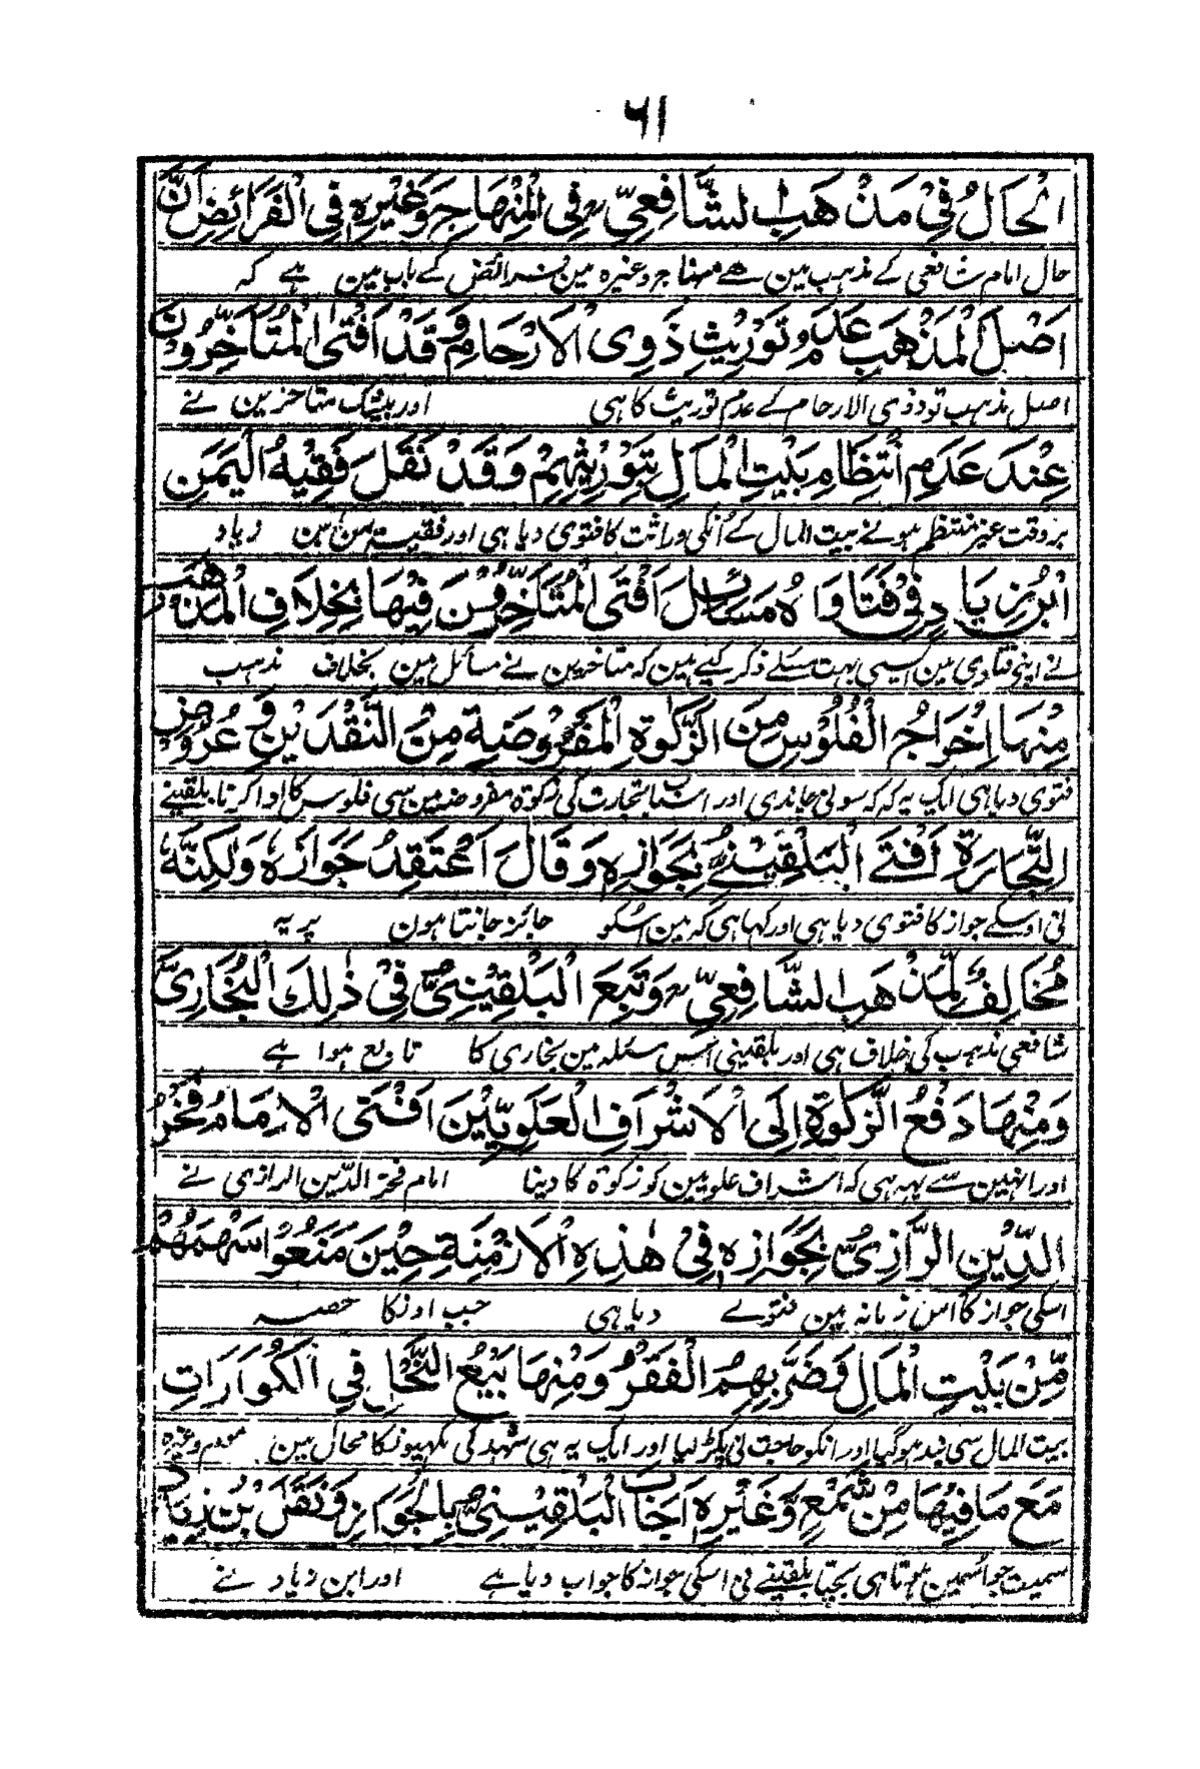 ٦١
اَلْحَالُ فِيْ مَذْهَبِ الشَّافِعِيِّ فِي الْمِنْهَاجِ وَغَيْرِهٖ فِي الْفَرَائِضِ اَنَّ
حال امام شافعی کے مذہب مین ہے منہاج وغیرہ مین فرائض کے باب مین ہے کہ
اَصْلَ الْمَذْهَبِ عَدَمُ تَوْرِيْثِ ذَوِي الْاَرْحَامِ وَقَدْ اَفْتَى الْمُتَاَخِّرُوْنَ
اصل مذہب تو ذوی الارحام کے عدم توریث کا ہی اور بیشک متاخرین نے
عِنْدَ عَدَمِ انْتِظَامِ بَيْتِ الْمَالِ بِتَوْرِيْثِهِمْ وَقَدْ نَقَلَ فَقِيْهُ الْيَمَنِ
بروقت غیر منتظم ہونے بیت المال کے اُنکی وراثت کا فتوی دیا ہی اور فقیہ یمن ابن زیاد
ابْنُ زِيَادٍ فِيْ فَتَاوَاهُ مَسَائِلَ اَفْتَى الْمُتَاَخِّرُوْنَ فِيْهَا بِخِلَافِ الْمَذْهَبِ
نے اپنے فتاوی مین ایسی بہت مسئلے ذکر کیے ہین کہ متاخرین نے مسائل مین بخلاف مذہب
مِنْهَا اِخْرَاجُ الْفُلُوْسِ مِنَ الزَّكٰوةِ الْمَفْرُوْضَةِ مِنَ النَّقْدَيْنِ وَعُرُوْضِ
فتوی دیا ہی ایک یہ کہ کہ سونی چاندی اور اسباب تجارت کی زکوة مفروضہ مین سی فلوس کا ادا کرنا بلقینے
التِّجَارَةِ اَفْتَى الْبُلْقِيْنِيُّ بِجَوَازِهٖ وَقَالَ اَعْتَقِدُ جَوَازَهٗ وَلٰكِنَّهٗ
نی اوسکے جواز کا فتوی دیا ہی اور کہا ہی کہ مین اسکو جائز جانتا ہون پر یہ
مُخَالِفٌ لِمَذْهَبِ الشَّافِعِيِّ وَتَبِعَ الْبُلْقِيْنِيُّ فِيْ ذٰلِكَ الْبُخَارِيَّ
شافعی مذہب کی خلاف ہی اور بلقینی اس مسئلہ مین بخاری کا تابع ہوا ہے
وَمِنْهَا دَفْعُ الزَّكٰوةِ اِلَى الْاَشْرَافِ الْعَلَوِيِّيْنَ اَفْتَى الْاِمَامُ فَخْرُ
اور انہین سے یہہ ہی کہ اشراف علویین کو زکوة کا دینا امام فخر الدّین الرازی نے
الدِّيْنِ الرَّازِيُّ بِجَوَازِهٖ فِيْ هٰذِهِ الْاَزْمِنَةِ حِيْنَ مَنَعُوْا سَهْمَهُمْ
اسکی جواز کا اس زمانہ مین فتوے دیا ہی جب اونکا حصہ
مِنْ بَيْتِ الْمَالِ وَضَرَّ بِهِمُ الْفَقْرُ وَمِنْهَا بَيْعُ النَّحْلِ فِي الْكُوَّارَاتِ
بیت المال سی بند ہوگیا اور انکو حاجت نی پکڑ لیا اور ایک یہ ہی شہد کی مکہیونکا محال مین موم وغیرہ
مَعَ مَا فِيْهَا مِنْ شَمْعٍ وَّغَيْرِهٖ اَجَابَ الْبُلْقِيْنِيُّ بِالْجَوَازِ وَنَقَلَ بْنُ زِيَادٍ
سمیت جو اسمین ہوتا ہی بیچنا بلقینے نی اسکی جواز کا جواب دیا ہے اور ابن زیاد نے